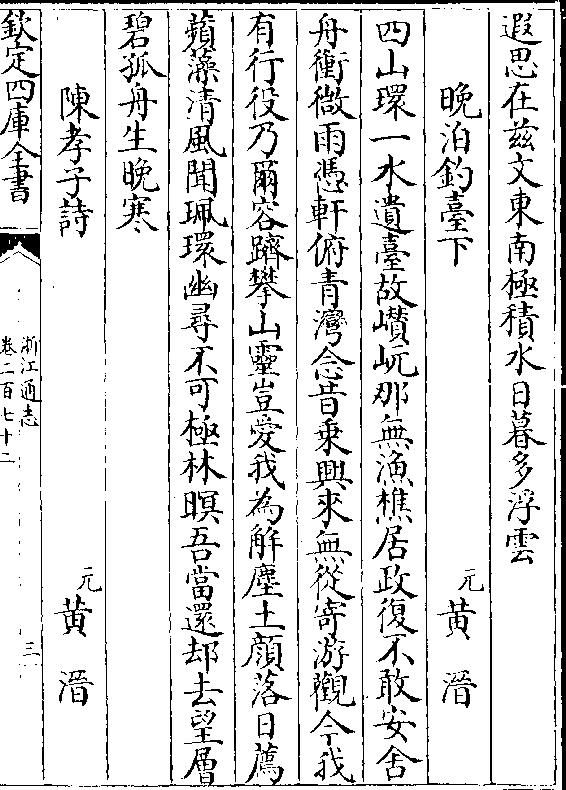 遐思在兹文東南極積水日暮多浮雲
晚泊釣臺下　元　黄溍
四山環一水遺臺故巑岏那無漁樵居政復不敢安舍
舟衝微雨憑軒俯青灣念昔乗興來無從寄游觀今我
有行役乃爾容躋攀山靈豈愛我為解塵土顔落日薦
蘋藻清風聞珮環幽尋不可極林暝吾當還却去望層
碧孤舟生晚寒
陳孝子詩　元　黄溍
欽定四庫全書
浙江通志
卷二百七十二
三